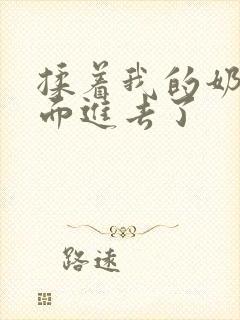 揉着我的奶
而进去了
路遠